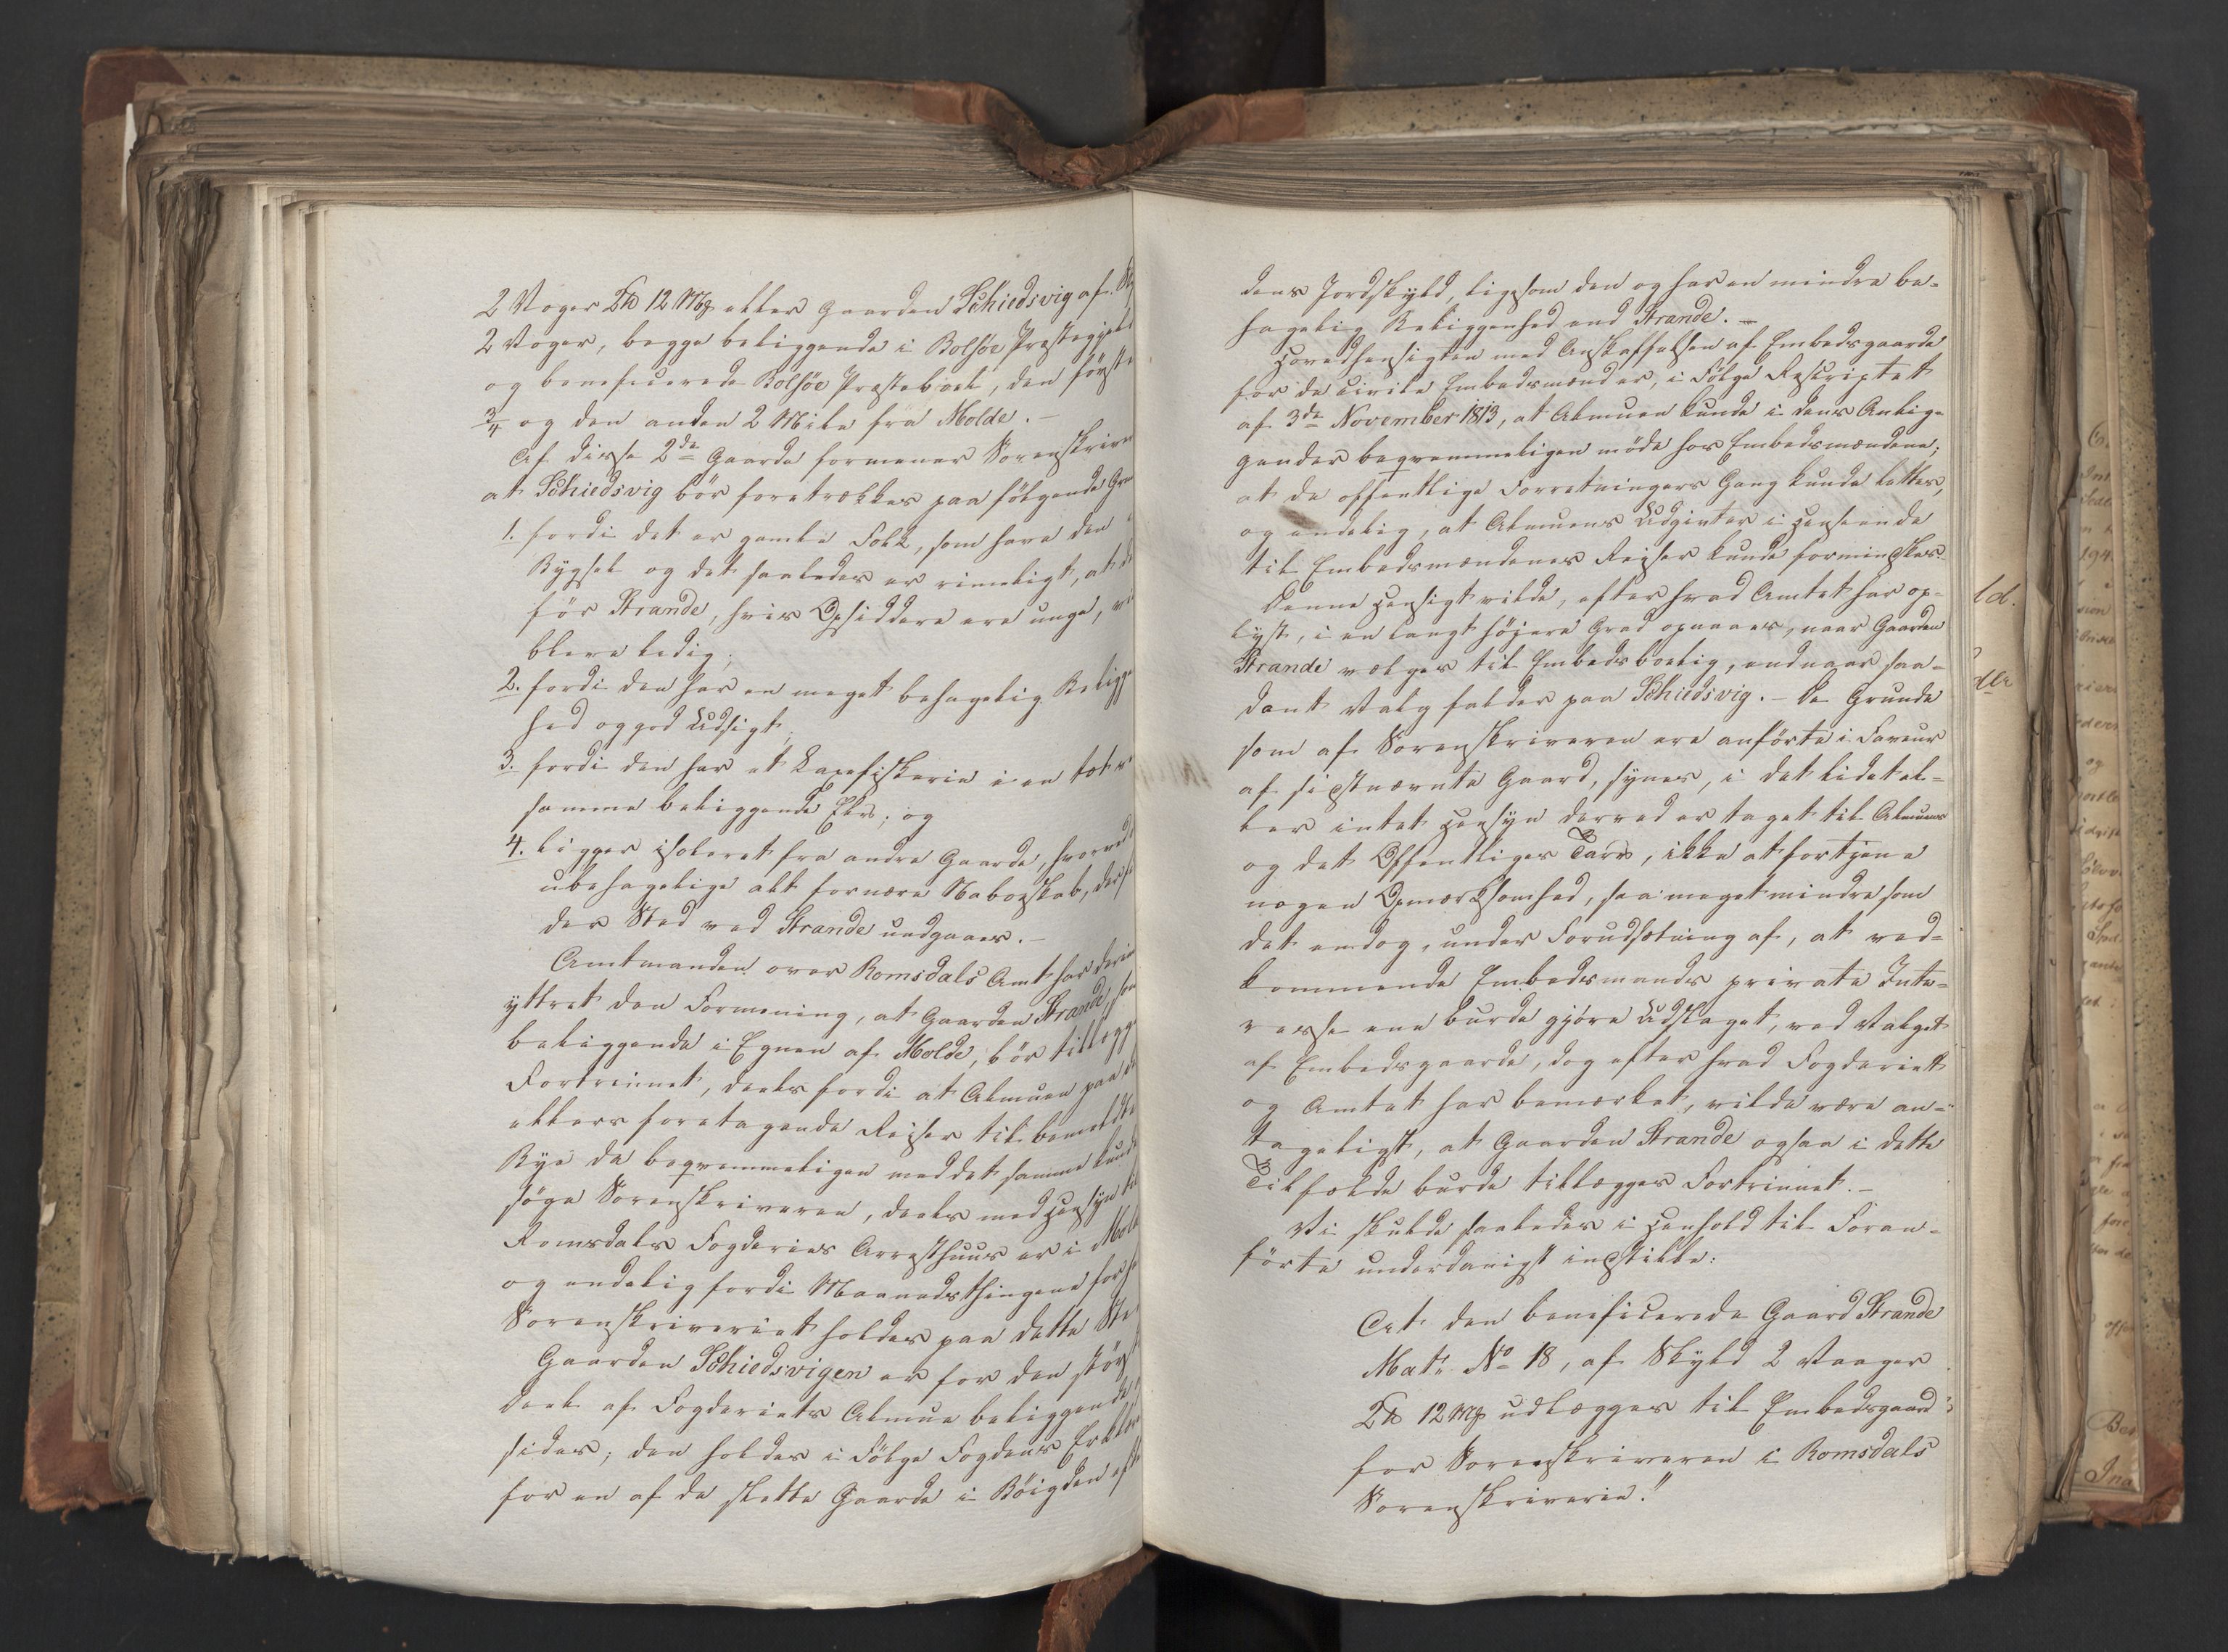 2 Voger 2 ℔ 12 Mkg eller Gaarden Schiedsvig af
2 Voger, begge beliggende i Bolsøe Præstegjeld
og beneficerede Bolsøe Præstebord, den første
3/4 og den anden 2 Mile fra Molde. —
Af disse 2de Gaarde formener Sorenskriver
at Schiedsvig bør foretrækkes paa følgende
1. fordi det er gamle Folk, som have den i
Bygsel og det saaledes er rimeligt, at
før Strande, hvis Opsiddere ere unge,
bleve ledig;
2. fordi den har en meget behagelig Beligge
hed og god Udsigt;
3. fordi den har et Laxefiskerie i en tet v
samme beliggende Elv; og
4. ligger isoleret fra andre Gaarde, hvorved
ubehagelige alt fornære Naboeskab, der
der Sted ved Strande undgaaes. —
Amtmanden over Romsdals Amt har
yttret den Formening, at Gaarden Strande, som
beliggende i Egnen af Molde, bør tillægges
Fortrinnet, deels fordi at Almuen paa
ellers foretagende Reiser til bemeldte
Bye da beqvemmeligen med det samme kunde
søge Sorenskriveren, deels med Hensyn til
Romsdals Fogderies Arresthuus er i Molde
og endelig fordi Maanedsthingene for
Sorenskriveriet holdes paa dette Sted
Gaarden Schiedsvigen er for den største
Deel af Fogderiets Almue beliggende
sides; den holdes i Følge Fogdens Erklæ
for en af de slette Gaarde i Bøigden eft
dens Jordskyld, ligesom den og har en mindre be-
hagelig Beliggenhed end Strande. —
Hovedhensigten med Anskaffelsen af Embedsgaarde
for de civile Embedsmænd er, i Følge Rescriptet
af 3de November 1813, at Almuen kunde i dens Anlig-
gender beqvemmeligen møde hos Embedsmændene;
at de offentlige Forretningers Gang kunde lettes,
og endelig, at Almuens Udgivter i Henseende
til Embedsmændenes Reiser kunde formindskes.
Denne Hensigt vilde, efter hvad Amtet har op-
lyst, i en langt høiere Grad opnaaes, naar Gaarden
Strande vælges til Embedsboelig, end naar saa-
dant Valg falder paa Schiedsvig. — De Grunde
som af Sorenskriveren ere anførte i Faveur
af sidstnævnte Gaard, synes, i det lidet el-
ler intet Hensyn derved er taget til Almuens
og det Offentliges Tarv, ikke at fortjene
nogen Opmærksomhed, saa meget mindre som
det endog, under Forudsætning af, at ved-
kommende Embedsmands private Inte-
resse ene burde gjøre Udslaget, ved Valget
af Embedsgaarde, dog efter hvad Fogderiet
og Amtet har bemærket, vilde være an-
tageligst, at Gaarden Strande ogsaa i dette
Tilfælde burde tillægges Fortrinnet. —
Vi skulde saaledes i Henhold til Foran-
førte underdanigst indstille:
At den beneficerede Gaard Strande
Matr. No 18, af Skyld 2 Vaager
2 ℔ 12 Mk udlægges til Embedsgaard
for Sorenskriveren i Romsdals
Sorenskriverie."